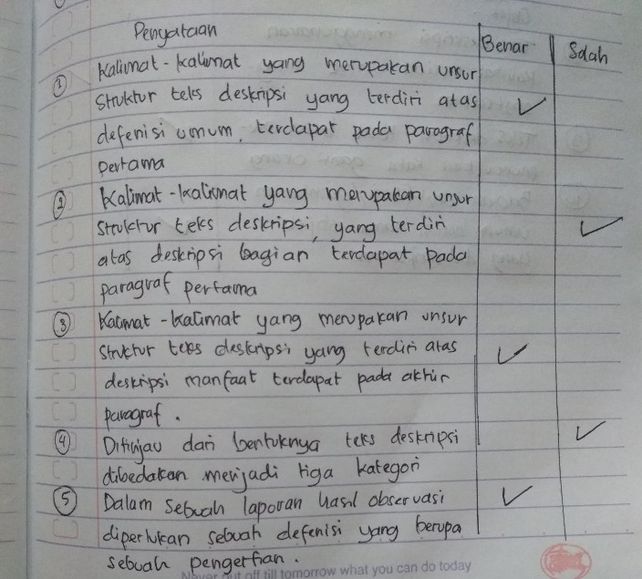 Penyataan Benar Salah
① Kalimat-kalimat yang merupakan unsur
Struktur teks deskripsi yang terdiri atas ✓
defenisi umum, terdapat pada paragraf
pertama
② Kalimat-kalimat yang merupakan unsur
Struktur teks deskripsi, yang terdiri ✓
atas deskripsi bagian terdapat pada
paragraf pertama
③ Kalimat-kalimat yang merupakan unsur
struktur teks deskripsi yang terdiri atas ✓
deskripsi manfaat terdapat pada akhir
paragraf.
④ Ditinjau dari bentuknya teks deskripsi ✓
dibedakan menjadi tiga kategori
⑤ Dalam sebuah laporan hasil observasi ✓
diperlukan sebuah defenisi yang berupa
sebuah pengertian.
Never put off till tomorrow what you can do today